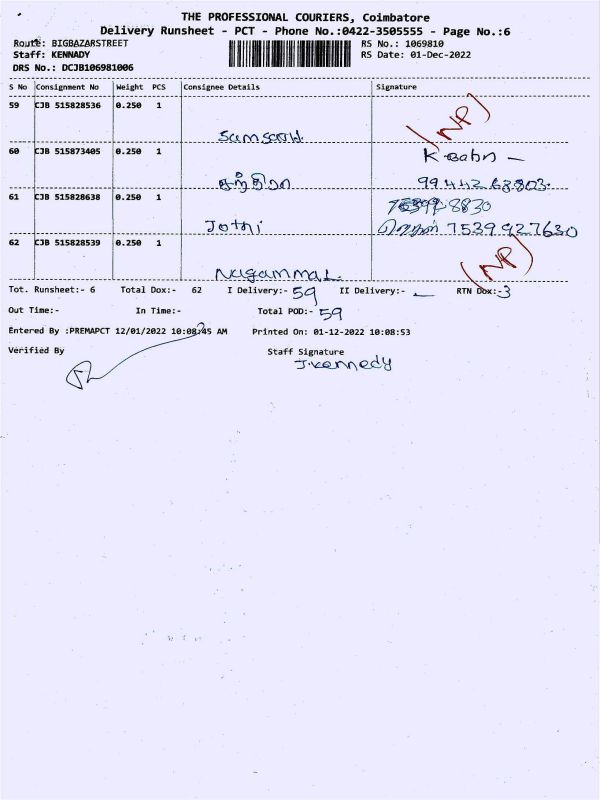 THE PROFESSIONAL COURIERS, Coimbatore
Delivery Runsheet - PCT - Phone No.:0422-3505555 - Page No.:6
Route: BIGBAZARSTREET
RS No.: 1069810
Staff: KENNADY
RS Date: 01-Dec-2022
DRS No.: DCJB106981006
S No Consignment No Weight PCS Consignee Details Signature
59 CJB 515828536 0.250 1
(NP)
60 CJB 515873405 0.250 1
99442 63803
61 CJB 515828638 0.250 1
Jothi 7539927630
62 CJB 515828539 0.250 1
(NP)
Nagammal
Tot. Runsheet:- 6 Total Dox:- 62 I Delivery:- 59 II Delivery:- – RTN Dox:-3
Out Time:- In Time:- Total POD:- 59
Entered By :PREMAPCT 12/01/2022 10:08:45 AM Printed On: 01-12-2022 10:08:53
Verified By Staff Signature
J.Kennedy